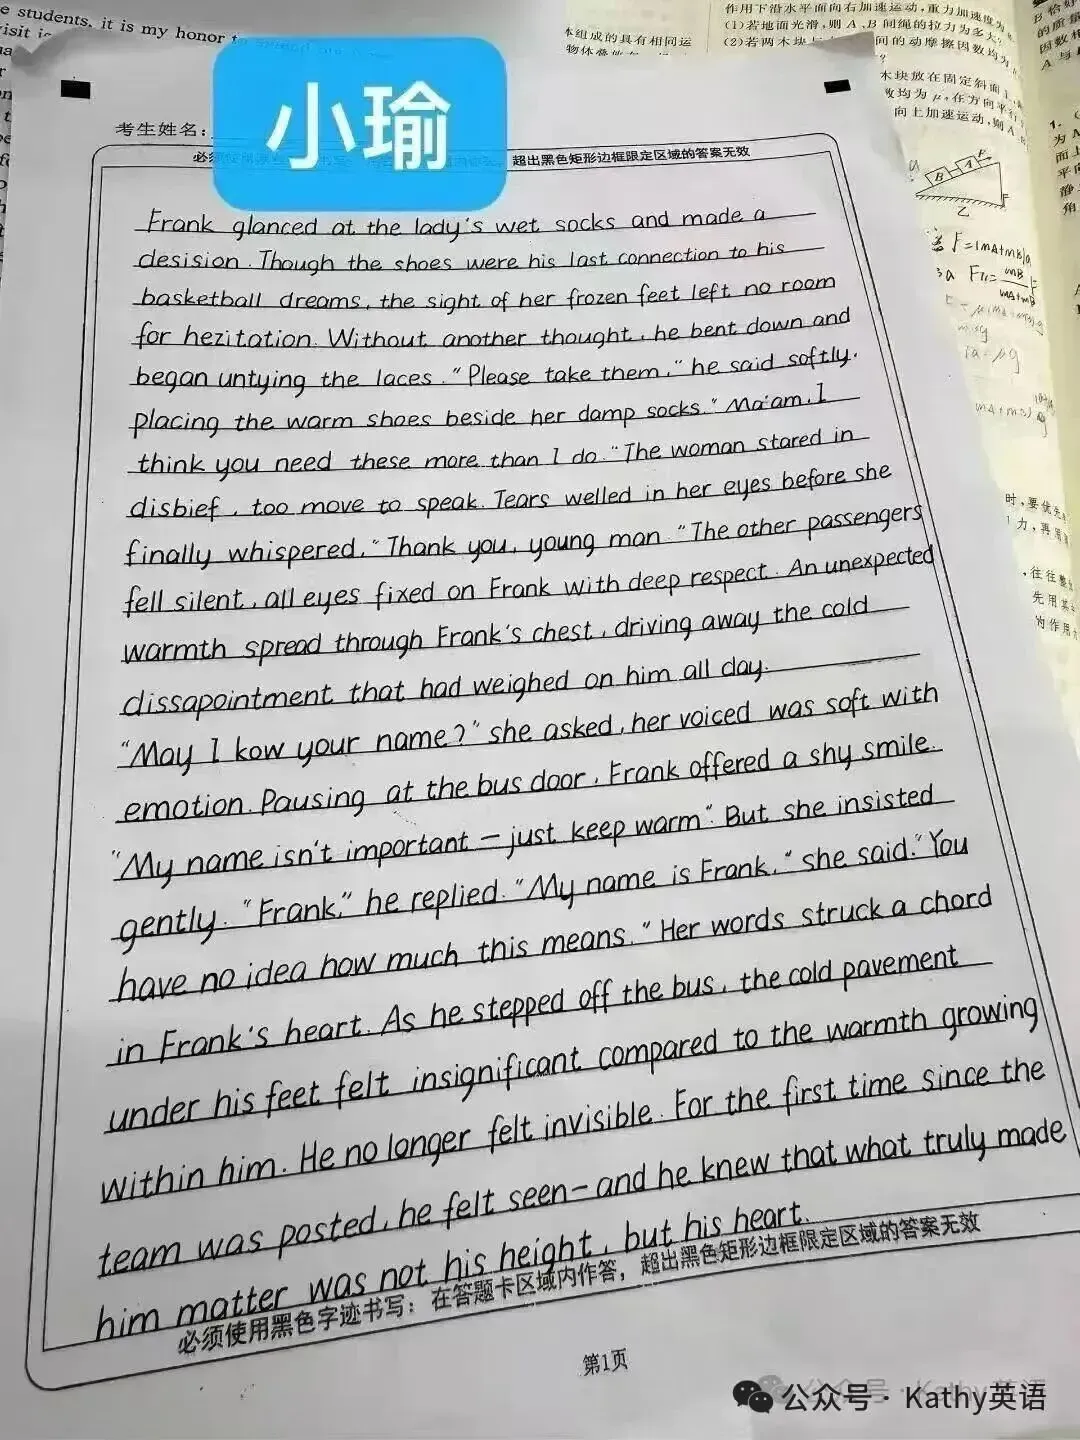 e students, it is my honor
visit
本组成的具有相同运
作用下沿水平面向右加速运动，重力加速度为
(1)若地面光滑，则A、B间绳的拉力为多大
(2)若两木块与
间的动摩擦因数均为
木块放在固定斜面上
数均为μ，在方向平行
向上加速运动，则A
乙
小瑜
考生姓名：
超出黑色矩形边框限定区域的答案无效
Frank glanced at the lady's wet socks and made a
desision. Though the shoes were his last connection to his
basketball dreams, the sight of her frozen feet left no room
for hezitation. Without another thought, he bent down and
began untying the laces. "Please take them," he said softly,
placing the warm shoes beside her damp socks. "Ma'am, I
think you need these more than I do." The woman stared in
disbief, too move to speak. Tears welled in her eyes before she
finally whispered, "Thank you, young man." The other passengers
fell silent, all eyes fixed on Frank with deep respect. An unexpected
warmth spread through Frank's chest, driving away the cold
dissapointment that had weighed on him all day.
"May I kow your name?" she asked, her voiced was soft with
emotion. Pausing at the bus door, Frank offered a shy smile.
"My name isn't important — just keep warm". But she insisted
gently. "Frank," he replied. "My name is Frank," she said. "You
have no idea how much this means." Her words struck a chord
in Frank's heart. As he stepped off the bus, the cold pavement
under his feet felt insignificant compared to the warmth growing
within him. He no longer felt invisible. For the first time since the
team was posted, he felt seen — and he knew that what truly made
him matter was not his height, but his heart.
必须使用黑色字迹书写：在答题卡区域内作答，超出黑色矩形边框限定区域的答案无效
第1页
公众号 · Kathy英语